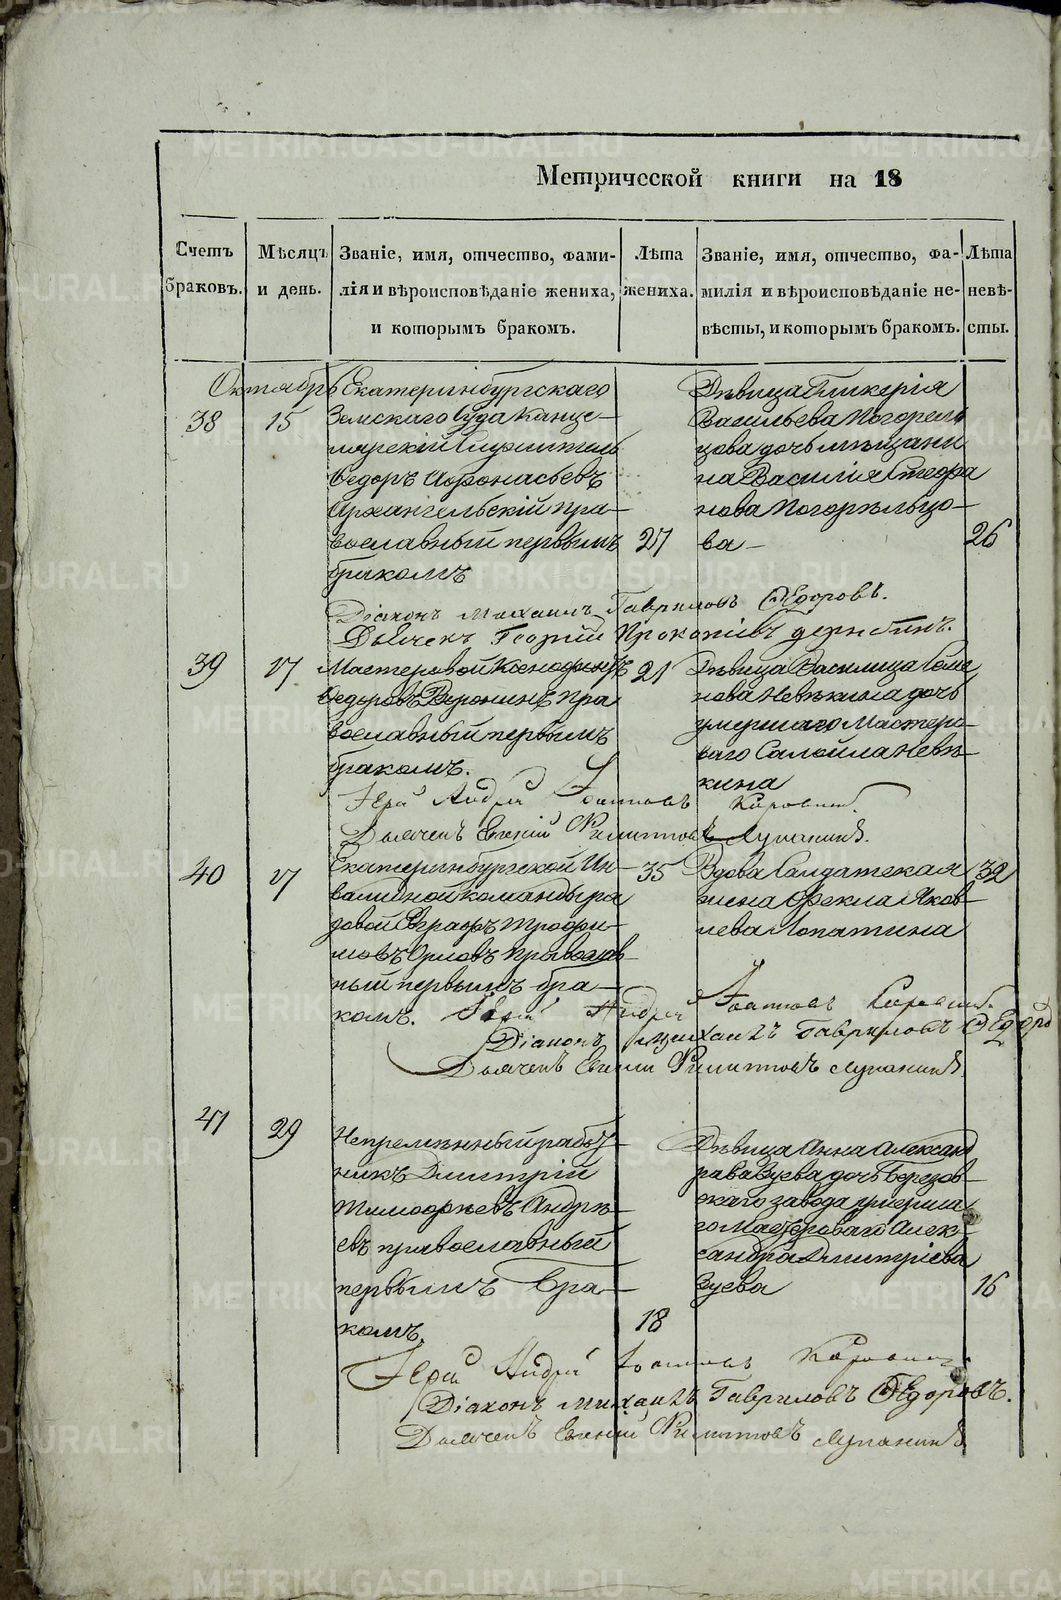 Метрической книги на 18
Счетъ браковъ.
Мѣсяцъ и день.
Званіе, имя, отчество, фами-
лія и вѣроисповѣданіе жениха,
и которымъ бракомъ.
Лѣта
жениха.
Званіе, имя, отчество, фа-
милія и вѣроисповѣданіе не-
вѣсты, и которымъ бракомъ.
Лѣта
невѣ-
сты.
Октябрь
38
15
Екатеринбургскаго
Земскаго Суда Канце-
лярскій Служитель
Ѳедоръ Аѳонасьевъ
Архангельскій пра-
вославный первымъ
бракомъ
27
Дѣвица Гликерія
Васильева Погорель
цова дочь мѣщани
на Василія Стефа
нова Погорѣльцо-
ва
26
Діаконъ Михаилъ Гавриловъ Ѳедоровъ.
Дьячекъ Георгій Прокопіевъ
39
17
Мастеровой Ксенофонтъ
Ѳедоровъ Воронинъ пра
вославный первымъ
бракомъ.
21
Дѣвица Василиса Само
нова Невѣкина дочь
умершаго Мастеро-
ваго Самойла Невѣ-
кина
Іерей Андрей Іоанновъ
Дьячекъ Евгеній Филипповъ Лупанинъ.
40
17
Екатеринбургской Ин-
валидной команды ря
довой Евграфъ Трофи-
мовъ Орловъ Православ-
ный первымъ бра-
комъ.
35
Вдова Салдатская
жена Ѳекла Яков-
лева Лопатина
32
Іерей Андрей Іоанновъ
Діаконъ Михаилъ Гавриловъ Ѳедоро
Дьячекъ Евгеній Филипповъ Лупанинъ.
41
29
Непремѣнный работ-
никъ Дмитрій
Тимоѳеевъ Андре-
евъ православный
первымъ бра-
комъ.
18
Дѣвица Анна Александ
рава Зуева дочь Березов-
скаго завода умерша
го Мастероваго Алек-
сандра Дмитріева
Зуева
16
Іерей Андрей Іоанновъ
Діаконъ Михаилъ Гавриловъ Ѳедоровъ.
Дьячекъ Евгеній Филипповъ Лупанинъ
METRIKI.GASO-URAL.RU